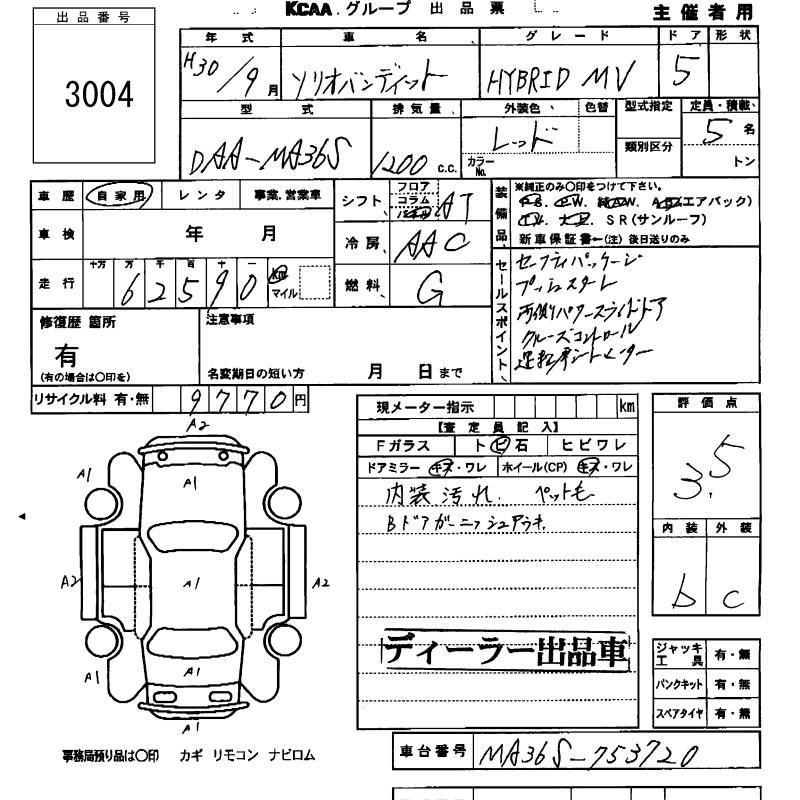 KCAA グループ 出品票
主催者用
出品番号
3004
年式 車名 グレード ドア 形状
H30/9月 ソリオバンディット HYBRID MV 5
型式 排気量 外装色 色替 型式指定 定員・積載
DAA-MA36S 1200 c.c. レッド カラーNo. 類別区分 5名
トン
車歴 自家用 レンタ 事業.営業車
車検 年 月
走行 十万 万 千 百 十
62590 km マイル
シフト フロア コラム パネル AT
冷房 AAC
燃料 G
装備品
※純正のみ○印をつけて下さい。
P.S. P.W. 純正A.W. A.B.(エアバック)
T.V. ナビ. S R (サンルーフ)
新車保証書(注) 後日送りのみ
セールスポイント
セーフティパッケージ
プッシュスタート
両側パワースライドドア
クルーズコントロール
運転席シートヒーター
修復歴 箇所
有
(有の場合は○印を)
注意事項
名変期日の短い方 月 日まで
リサイクル料 有・無 9770円
現メーター指示 km
【査定員記入】
Fガラス トビ石 ヒビワレ
ドアミラー キズ・ワレ ホイール(CP) キズ・ワレ
内装汚れ. ペット毛
Bドアガーニッシュアウキ
ディーラー出品車
評価点
3.5
内装 外装
b c
ジャッキ工具 有・無
パンクキット 有・無
スペアタイヤ 有・無
A2
A1
A1
A2
A1
A2
A1
A1
A1
A1
事務局預り品は○印 カギ リモコン ナビロム
車台番号 MA36S-753720